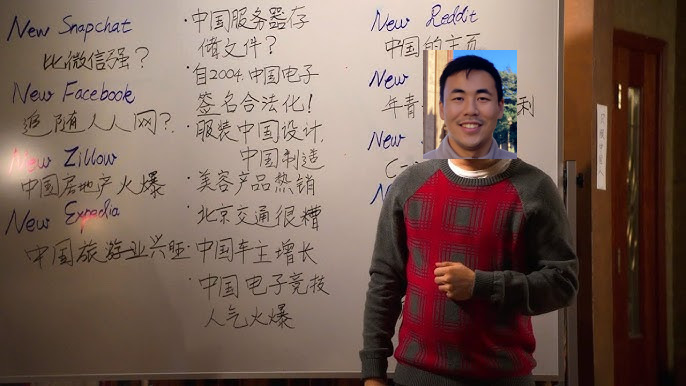 New Snapchat
比微信强?
New Facebook
追随人人网?
New Zillow
中国房地产火爆
New Expedia
中国旅游业兴旺
·中国服务器存
储文件?
·自2004,中国电子
签名合法化!
·服装中国设计,
中国制造
·美容产品热销
·北京交通很糟
·中国车主增长
·中国电子竞技
人气火爆
New Reddit
中国的主页
New
年青 利
New